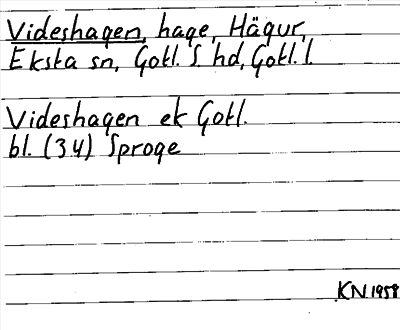 Videshagen, hage, Hägur,
Eksta sn, Gotl. S hd, Gotl. l.
Videshagen ek Gotl.
bl. (34) Sproge
KN 1958